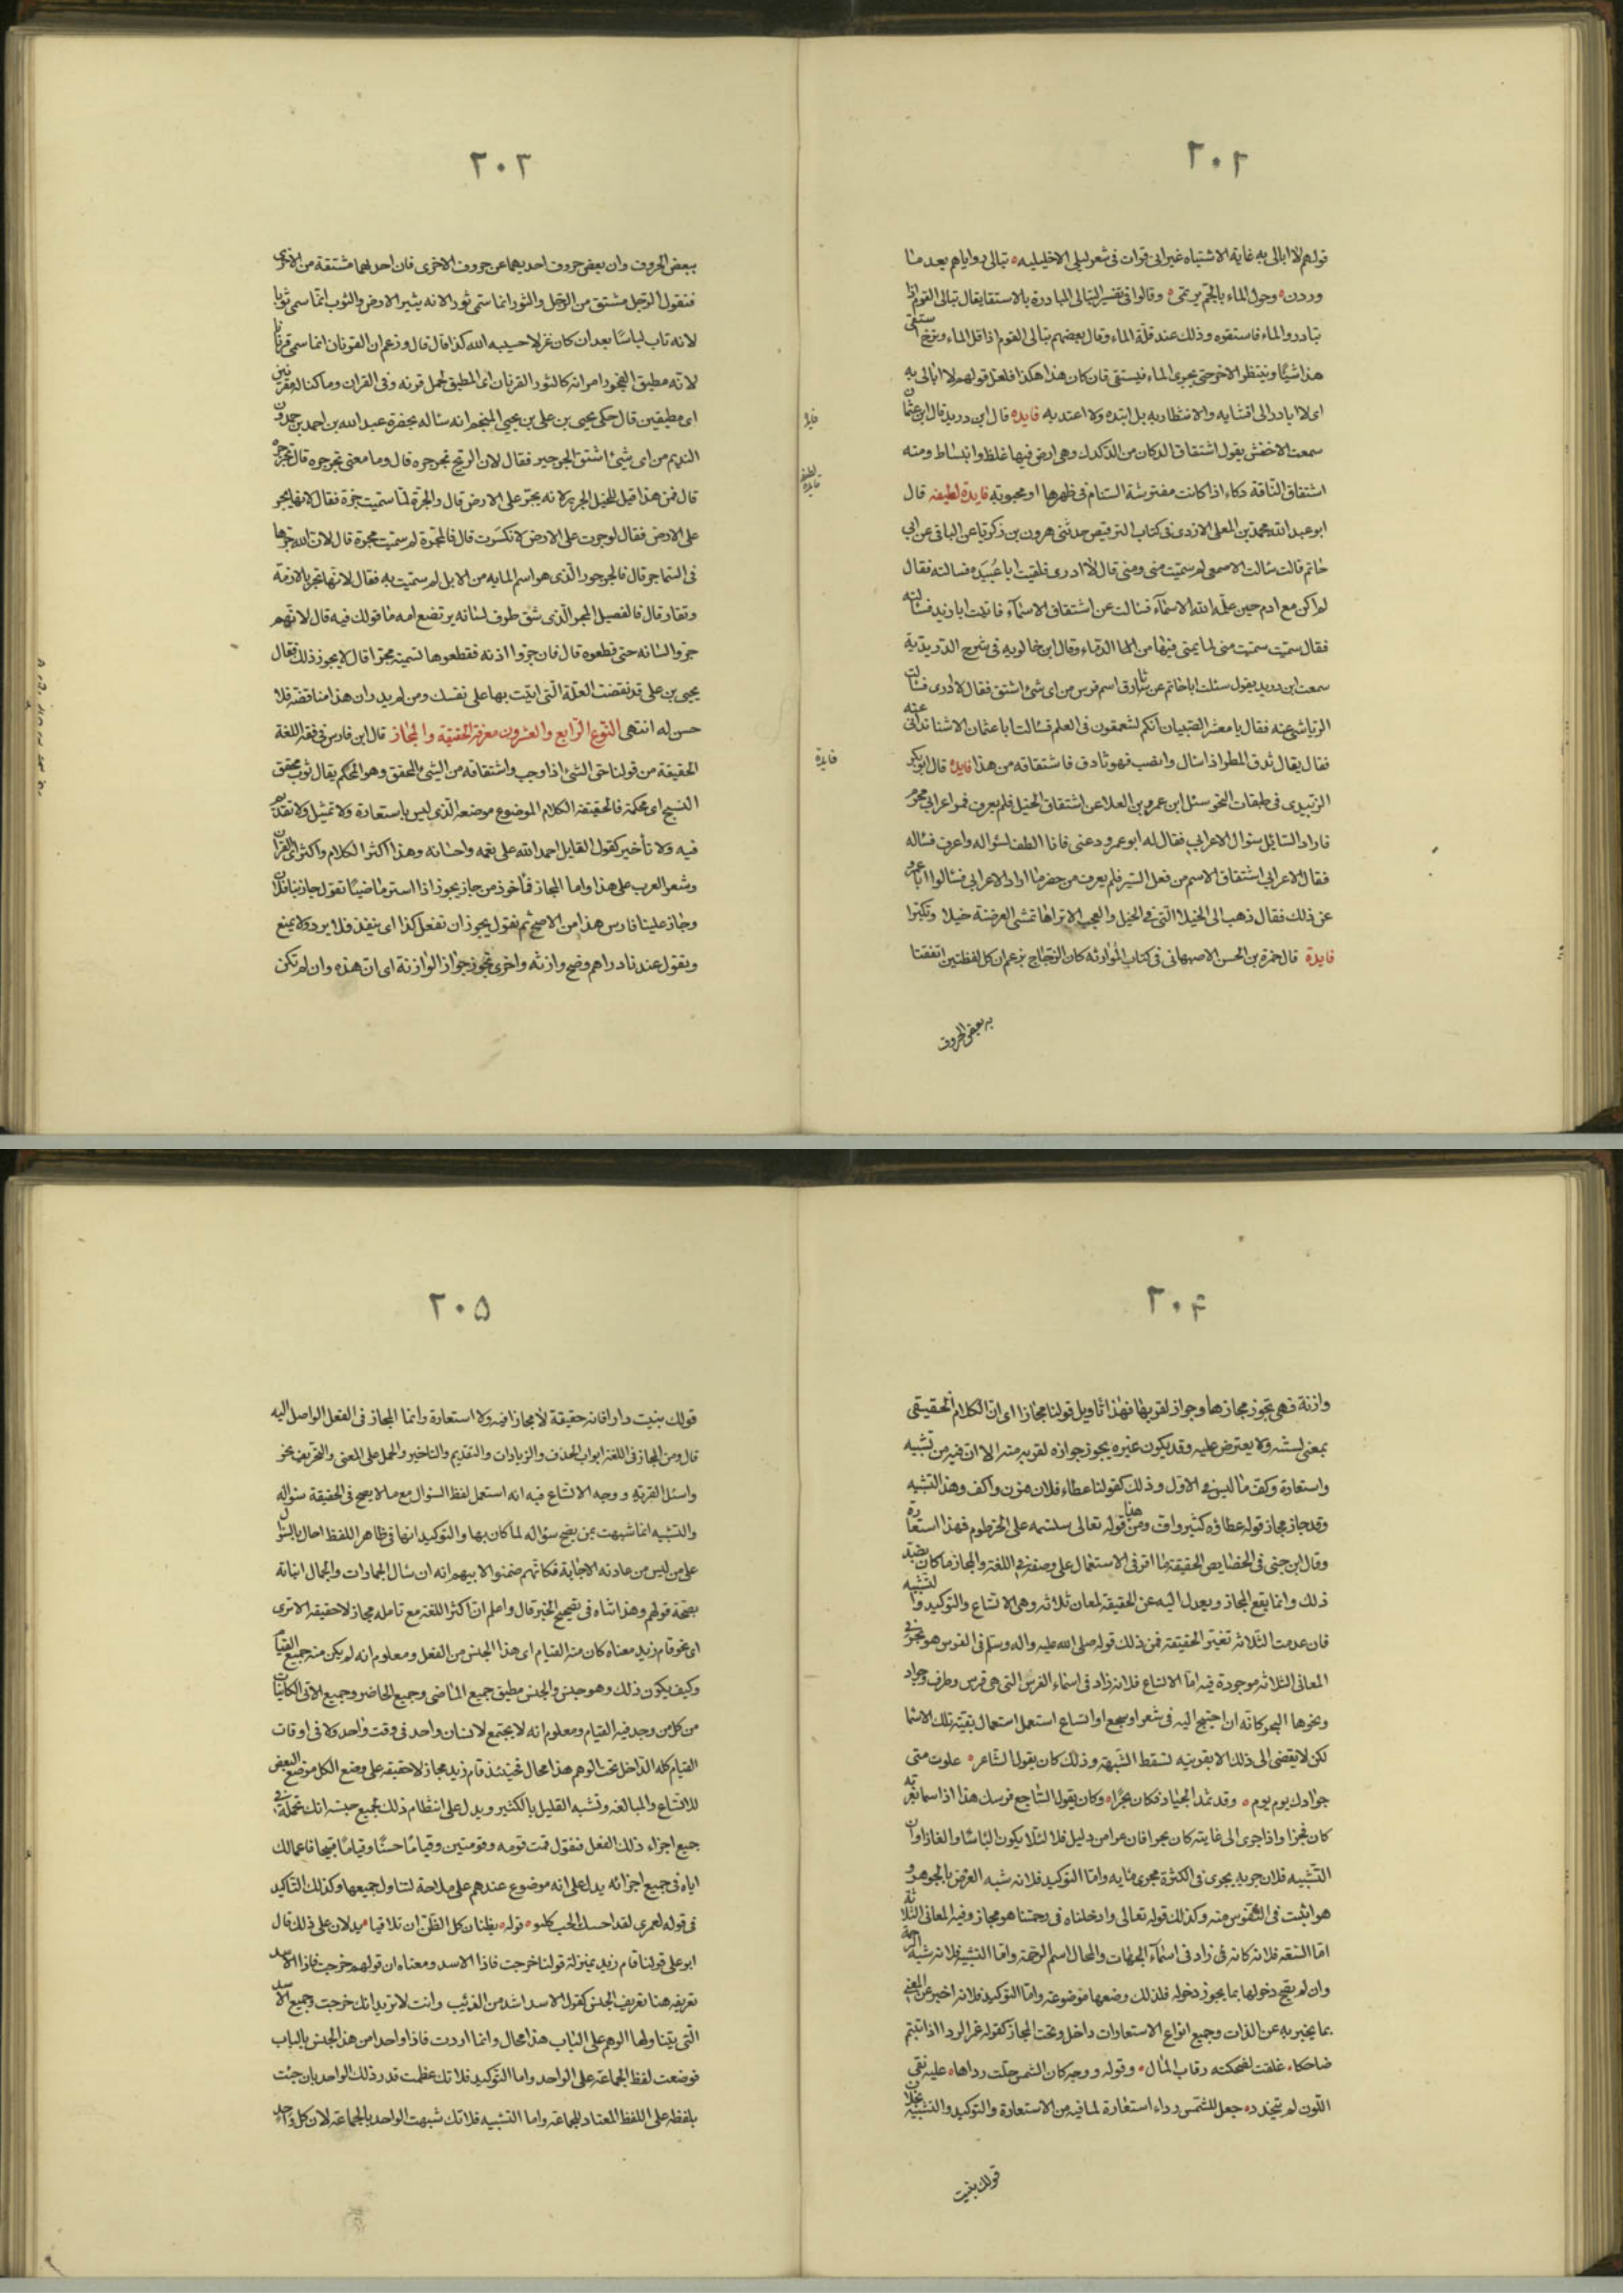 ٢٠٢
قولهم لا ابالى به غاية الاشتباه غير انى قرات فى شعر ليلى الاخيليه تبالى رواياهم بعد ما
وردن وحول الماء بالجم يرتمى وقالوا فى تفسير التبالى المبادرة بالاستقا يقال تبالى القوم اذا
تبادروا الماء فاستقوه وذلك عند قلة الماء وقال بعضهم تبالى القوم اذا قل الماء ونزح استقى
هذا شيئا وينتظر الاخر حتى يجرى الماء فيستقى فان كان هذا هكذا فلعل قولهم لا ابالى به
اى لا ابادر الى اقتنايه والانتظار به بل انبذه ولا اعتد به فايده قال ابن دريد قال ابو عثمان
سمعت الاخفش يقول اشتقاق الدكان من الدكدك وهى ارض فيها غلظ وانبساط ومنه
اشتقاق الناقة دكاء اذا كانت مفترشة السنام فى ظهرها او مجبوبته فايدة لطيفه قال
ابو عبد الله محمد بن المعلى الازدى فى كتاب الترقيص حدثنى هرون بن زكريا عن البلعى عن ابى
حاتم قالت سالت الاصمعى لم سميت منى ومنى قال لا ادرى فلقيت ابا عبيده فسالته فقال
لم اكن مع ادم حين علمه الله الاسماء فسالت عن اشتقاق الاسماء فاتيت ابا زيد فسالته
فقال سميت سميت منى لما يمنى فيها من الدماء وقال ابن خالويه فى شرح الدريدية
سمعت ابن دريد يقول سئلت ابا حاتم عن ثادق اسم فرس من اى شئ اشتق فقال لا ادرى فسالت
الرياشى عنه فقال يا معشر الصبيان انكم لتعمقون فى العلم فسالت ابا عثمان الاشنانداني عنه
فقال يقال ثدق المطر اذا سال وانصب فهو ثادق فاشتقاقه من هذا فايده قال ابو بكر
الزبيدى فى طبقات النحو سئل ابن عمرو بن العلا عن اشتقاق الخيل فلم يعرف فمر اعرابى محرم
فاراد السائل سئوال الاعرابى فقال له ابو عمرو دعنى فانا الطف لسؤاله واعرف فساله
فقال الاعرابى اشتقاق الاسم من فعل السير فلم يعرف من حضر ما اراد الاعرابى فسالوا ابا عمرو
عن ذلك فقال ذهب الى الخيلا التى فى الخيل والعجب الا تراها تمشى العرضنة خيلا وتكبرا
فايدة قال حمزة بن الحسن الاصبهانى فى كتاب الموازنة كان الزجاج يزعم ان كل لفظتين اتفقتا
به بعض الحروف
فايده
لطيفه فايده
فايده
٢٠٣
ببعض الحروف وان نعص حروف احديهما عن حروف الاخرى فان احديهما مشتقة من الاخرى
فنقول الرجل مشتق من الرجل والثور انما سمى ثورا لانه يثير الارض والثوب انما سمى ثوبا
لانه ثاب لباسا بعد ان كان غزلا حسيبه الله كذا قال قال وزعم ان القرنان انما سمى قرنانا
لانه مطيق لفجور امراته كالثور القرنان اى المطيق لحمل قرونه وفى القران وما كنا له مقرنين
اى مطيقين قال حكى يحيى بن على بن يحيى المنجم انه ساله بحضرة عبد الله بن احمد بن حمدون
النديم من اى شئ اشتق الجرجير فقال لان الريح تجرجره قال وما معنى تجرجره قال تجرره
قال فمن هذا قيل للحبل الجرير لانه يجر على الارض قال والجرة لما سميت جرة فقال لانها تجر
على الارض فقال لو جرت على الارض لانكسرت قال فالمجرة لم سميت مجرة قال لان الله جرها
فى السما جر قال فالجرجور الذى هو اسم المايه من الابل لم سميت به فقال لانها تجر بالازمة
وتقاد قال فالفصيل المجر الذى شق طرف لسانه يرتضع امه ما قولك فيه قال لانهم
جروا لسانه حتى قطعوه قال فان جروا اذنه فقطعوها تسميته مجرا قال لا يجوز ذلك فقال
يحيى بن على قد نقضت العلة التى اتيت بها على نفسك ومن لم يدر ان هذا مناقضه فلا
حس له انتهى النوع الرابع والعشرون معرفة الحقيقة والمجاز قال ابن فارس فى فقه اللغة
الحقيقة من قولنا حق الشئ اذا وجب واشتقاقه من الشئ المحقق وهو المحكم يقال ثوب محقق
النسج اى محكمة فالحقيقة الكلام الموضوع موضعه الذى ليس باستعارة ولا تمثيل ولا تقديم
فيه ولا تأخير كقول القايل احمد الله على نعمه واحسانه وهذا اكثر الكلام واكثر اى القران
وشعر العرب على هذا واما المجاز فمأخوذ من جاز يجوز اذا استر ماضيا تقول جاز بنا فلان
وجاز علينا فارس هذا من الاصل ثم نقول يجوز ان تفعل كذا اى ينفذ فلا يرد ولا يمنع
ونقول عندنا دراهم وضح وازنه واخرى تجوز جواز الوازنة اى ان هذه وان لم تكن
٢٠٤
وازنة فهى تجوز مجازها وجواز لقربها فهذا تاويل قولنا مجازا اى ان الكلام الحقيقى
بمعنى لسنه ولا يعترض عليه وقد يكون غيره يجوز جوازه لقربه منه الا ان فيه من تشبيه
واستعارة وكف ما ليس فى الاول وذلك كقولنا عطاء فلان مزن واكف وهذا التشبيه
وقد جاز مجاز قوله عطاؤه كثير واف ومن هذا قوله تعالى سنسمه على الخرطوم فهذا استعارة
وقال ابن جنى فى الخصايص الحقيقة ما اقر فى الاستعمال على وصفه فى اللغة والمجاز ما كان بضد
ذلك وانما يقع المجاز ويعدل اليه عن الحقيقة لمعان ثلاثه وهى الاتساع والتوكيد والتشبيه
فان عدمت الثلاثه تغير الحقيقة فمن ذلك قوله صلى الله عليه واله وسلم فى الفرس هو بحر فى
المعانى الثلاثه موجودة فيه اما الاتساع فلانه زاد فى اسماء الفرس التى هى فرس وطرف وجواد
ونحوها البحر كانه ان احتيج اليه فى شعر او سجع او اتساع استعمل استعمال بقية تلك الاسما
لكن لا يفضى الى ذلك الا بقرينه تسقط الشبهة وذلك كان يقول الشاعر علوت متى
جوادك يوم يوم وقد ثمد الجياد فكان بحرا وكان يقول الساجع فرسك هذا اذا سما بغرته
كان فجرا واذا جرى الى غايته كان بحرا فان عرا من دليل فلا لئلا يكون الباسا والغازا وان
التشبيه فلان جريه يجرى فى الكثرة مجرى مايه واما التوكيد فلانه شبه العرض بالجوهر و
هو اثبت فى النفوس منه وكذلك قوله تعالى وادخلناه فى رحمتنا هو مجاز وفيه المعانى الثلاثة
اما السعه فلانه كانه فى زاد فى اسماء الجهات والمحال اسم الرحمة واما التشبيه فلانه شبه الرحمة
وان لم يصح دخولها بما يجوز دخوله فلذلك وضعها موضوعه واما التوكيد فلانه اخبر عن المعنى
بما يخبر به عن الذات وجميع انواع الاستعارات داخل وتحت المجاز كقوله غمر الردا اذا تبسم
ضاحكا غلقت لضحكته رقاب المال وقوله ووجه كان الشمس حلت رداها عليه نقى
اللون لم يتخدد جعل للشمس رداء استعارة لما فيه من الاستعارة والتوكيد والتشبيه بخلاف
قولك بنيت
٢٠٥
قولك بنيت دارا فانه حقيقة لا مجاز فيه ولا استعارة وانما المجاز فى الفعل الواصل اليه
قال ومن المجاز فى اللغة ابواب الحذف والزيادات والتقديم والتاخير والحمل على المعنى والتحريف نحو
واسئل القرية ووجه الاتساع فيه انه استعمل لفظ السوال مع ما لا يصح فى الحقيقة سؤاله
والتشبيه انما شبهت بمن يصح سؤاله لما كان بها والتوكيد انها فى ظاهر اللفظ احال بالسؤال
على من ليس من عادته الاجابة فكانهم ضمنوا لابيهم انه ان سال الجمادات والجمال انباته
بصحة قولهم وهذا تناه فى تصحيح الخبر قال واعلم ان اكثر اللغة مع تامله مجاز لا حقيقه الا ترى
اى نحو قام زيد معناه كان منه القيام اى هذا الجنس من الفعل ومعلوم انه لم يكن منه جميع القيام
وكيف يكون ذلك وهو جنس والجنس مطبق جميع الماضى وجميع الحاضر وجميع الاتى الكائنات
من كل من وجد فيه القيام ومعلوم انه لا يجتمع لانسان واحد فى وقت واحد ولا فى اوقات
القيام كله الداخل تحت الوهم هذا محال فحينئذ قام زيد مجاز لا حقيقه على وضع الكل موضع البعض
للاتساع والمبالغه وتشبه القليل بالكثير ويدل على انتظام ذلك لجميع جنسه انك تعمله فى
جميع اجزاء ذلك الفعل فنقول قمت قومه وقومتين وقياما حسنا وقياما قبيحا فاعمالك
اياه فى جميع اجزائه يدل على انه موضوع عندهم على صلاحه لتناول جميعها وكذلك التاكيد
فى قوله لعمرى لقد احببتك الحب كله وقوله يظنان كل الظن ان لا تلاقيا يدلان على ذلك قال
ابو على قولنا قام زيد بمنزلة قولنا خرجت فاذا الاسد ومعناه ان قولهم خرجت فاذا الاسد
تعريفه هنا تعريف الجنس كقول الاسد اشد من الذئب وانت لا تريد انك خرجت وجميع الاسد
التى يتناولها الوهم على الباب هذا محال وانما اردت فاذا واحد من هذا الجنس بالباب
فوضعت لفظ الجماعة على الواحد واما التوكيد فلانك عظمت قدر ذلك الواحد بان جئت
بلفظه على اللفظ المعتاد للجماعة واما التشبيه فلانك شبهت الواحد بالجماعة لان كل واحد